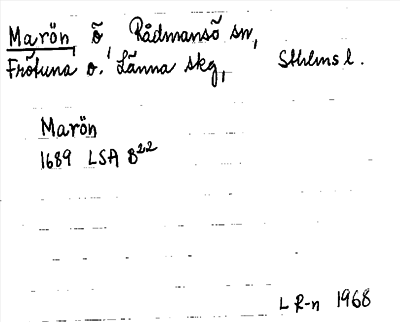 Marön ö Rådmansö sn,
Frötuna o. Länna skg, Sthlms l.
Marön
1689 LSA B22
L R-n 1968